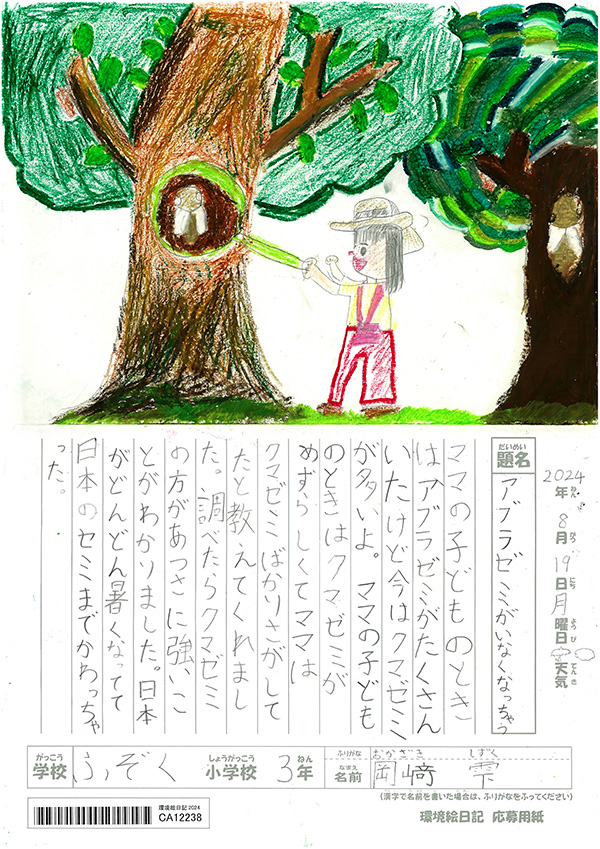 2024年8月19日月曜日天気
ねん
がつ
にち
ようび
てんき
だいめい
題名
アブラゼミがいなくなっちゃう
ママの子どものとき
はアブラゼミがたくさん
いたけど今はクマゼミ
が多いよ。ママの子ども
のときはクマゼミが
めずらしくてママは
クマゼミばかりさがして
たと教えてくれまし
た。調べたらクマゼミ
の方があつさに強いこ
とがわかりました。日本
がどんどん暑くなってて
日本のセミまでかわっちゃ
った。
がっこう
学校
ふぞく
しょうがっこう
小学校
3年
ねん
ふりがな
おかざき しずく
なまえ
名前
岡﨑 雫
(漢字で名前を書いた場合は、ふりがなをふってください)
環境絵日記2024
CA12238
環境絵日記 応募用紙